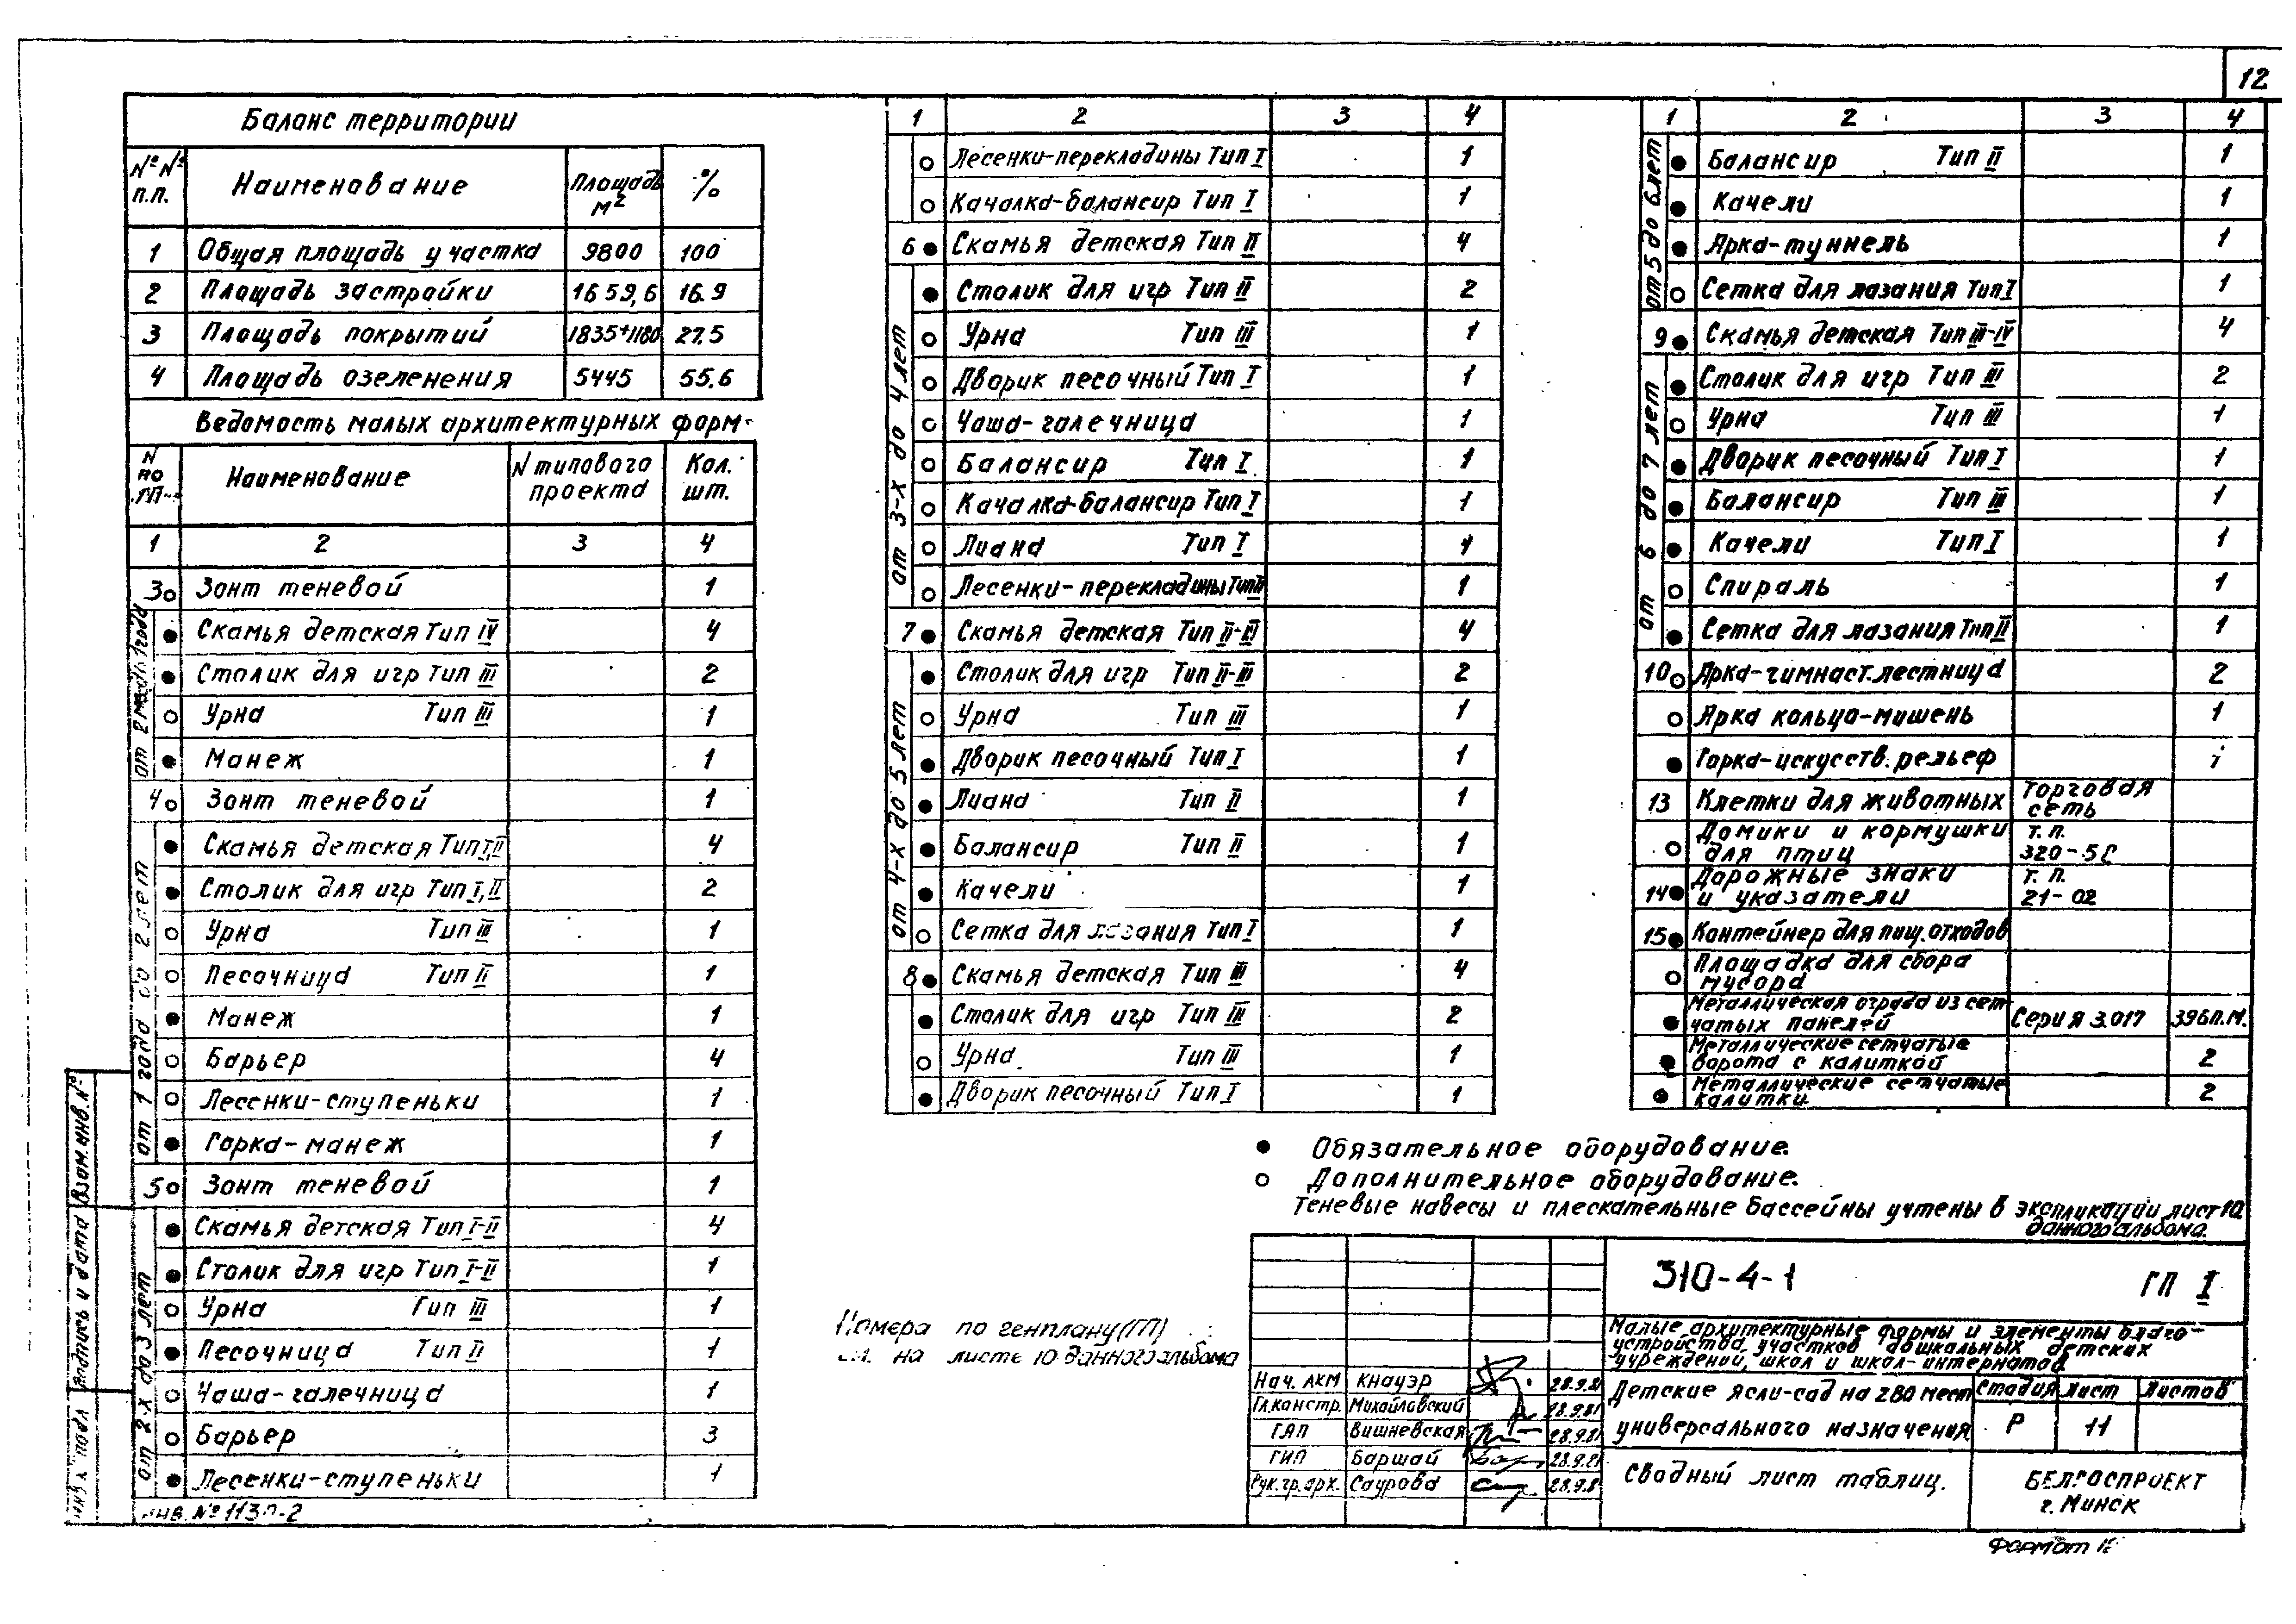 12
Баланс территории
№№ п.п. Наименование Площадь м² %
1 Общая площадь участка 9800 100
2 Площадь застройки 1659,6 16.9
3 Площадь покрытий 1835+1180 27.5
4 Площадь озеленения 5445 55.6
Ведомость малых архитектурных форм.
N по ГП Наименование N типового проекта Кол. шт.
1 2 3 4
3 ○ Зонт теневой 1
от 2 мес до 1 года
● Скамья детская Тип IV 4
● Столик для игр Тип III 2
○ Урна Тип III 1
● Манеж 1
4 ○ Зонт теневой 1
от 1 года до 2 лет
● Скамья детская Тип I,II 4
● Столик для игр Тип I,II 2
○ Урна Тип III 1
○ Песочница Тип II 1
● Манеж 1
○ Барьер 4
○ Лесенки-ступеньки 1
● Горка-манеж 1
5 ○ Зонт теневой 1
от 2-х до 3 лет
● Скамья детская Тип I-II 4
● Столик для игр Тип I-II 1
○ Урна Тип III 1
● Песочница Тип II 1
○ Чаша-галечница 1
○ Барьер 3
● Лесенки-ступеньки 1
1 2 3 4
○ Лесенки-перекладины Тип I 1
○ Качалка-балансир Тип I 1
6 ● Скамья детская Тип II 4
от 3-х до 4 лет
● Столик для игр Тип II 2
○ Урна Тип III 1
○ Дворик песочный Тип I 1
○ Чаша-галечница 1
○ Балансир Тип I 1
○ Качалка-балансир Тип I 1
○ Лиана Тип I 1
○ Лесенки-перекладины Тип II 1
7 ● Скамья детская Тип II-III 4
от 4-х до 5 лет
● Столик для игр Тип II-III 2
○ Урна Тип III 1
● Дворик песочный Тип I 1
● Лиана Тип II 1
● Балансир Тип II 1
● Качели 1
○ Сетка для лазания Тип I 1
8 ● Скамья детская Тип III 4
● Столик для игр Тип III 2
○ Урна Тип III 1
● Дворик песочный Тип I 1
1 2 3 4
от 5 до 6 лет
● Балансир Тип II 1
● Качели 1
● Арка-туннель 1
○ Сетка для лазания Тип I 1
9 ● Скамья детская Тип III-IV 4
от 6 до 7 лет
● Столик для игр Тип III 2
○ Урна Тип III 1
● Дворик песочный Тип I 1
● Балансир Тип III 1
● Качели Тип I 1
○ Спираль 1
● Сетка для лазания Тип II 1
10 ○ Арка-гимнаст.лестница 2
○ Арка кольцо-мишень 1
● Горка-искусств.рельеф 1
13 Клетки для животных Торговая сеть
○ Домики и кормушки для птиц т.п. 320-5С
14 ● Дорожные знаки и указатели т.п. 21-02
15 ● Контейнер для пищ.отходов
○ Площадка для сбора мусора
● Металлическая ограда из сетчатых панелей Серия 3.017 396п.м.
● Металлические сетчатые ворота с калиткой 2
● Металлические сетчатые калитки. 2
● Обязательное оборудование.
○ Дополнительное оборудование.
Теневые навесы и плескательные бассейны учтены в экспликации лист 10
данного альбома.
Номера по генплану (ГП)
см. на листе 10 данного альбома
310-4-1 ГП I
Малые архитектурные формы и элементы благо-
устройства участков дошкольных детских
учреждений, школ и школ-интернатов
Нач. АКМ Кнауэр 28.9.81
Гл.констр. Михайловский 28.9.81
ГАП Вишневская 28.9.81
ГИП Баршай 28.9.81
Рук.гр.арх. Саурова 28.9.8
Детские ясли-сад на 280 мест
универсального назначения
Стадия Лист Листов
Р 11
Сводный лист таблиц.
БЕЛГОСПРОЕКТ
г. Минск
Взам.инв.№
Подпись и дата
Инв.№ подл
Инв. №
Формат